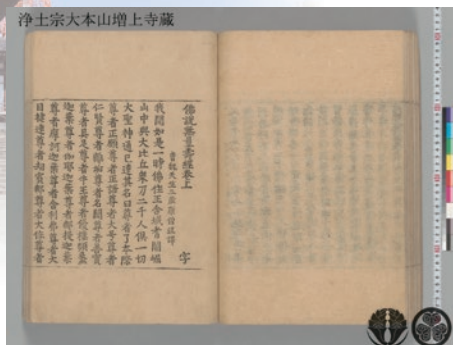 浄土宗大本山増上寺蔵
佛說無量壽經卷上
曹魏天竺三藏康僧鎧譯 字
我聞如是一時佛住王舍城耆闍崛
山中與大比丘衆万二千人俱一切
大聖神通已達其名曰尊者了本際
尊者正願尊者正語尊者大号尊者
仁賢尊者離垢尊者名聞尊者善實
尊者具足尊者牛王尊者優樓頻蠡
迦葉尊者伽耶迦葉尊者那提迦葉
尊者摩訶迦葉尊者舍利弗尊者大
目揵連尊者劫賓那尊者大住尊者